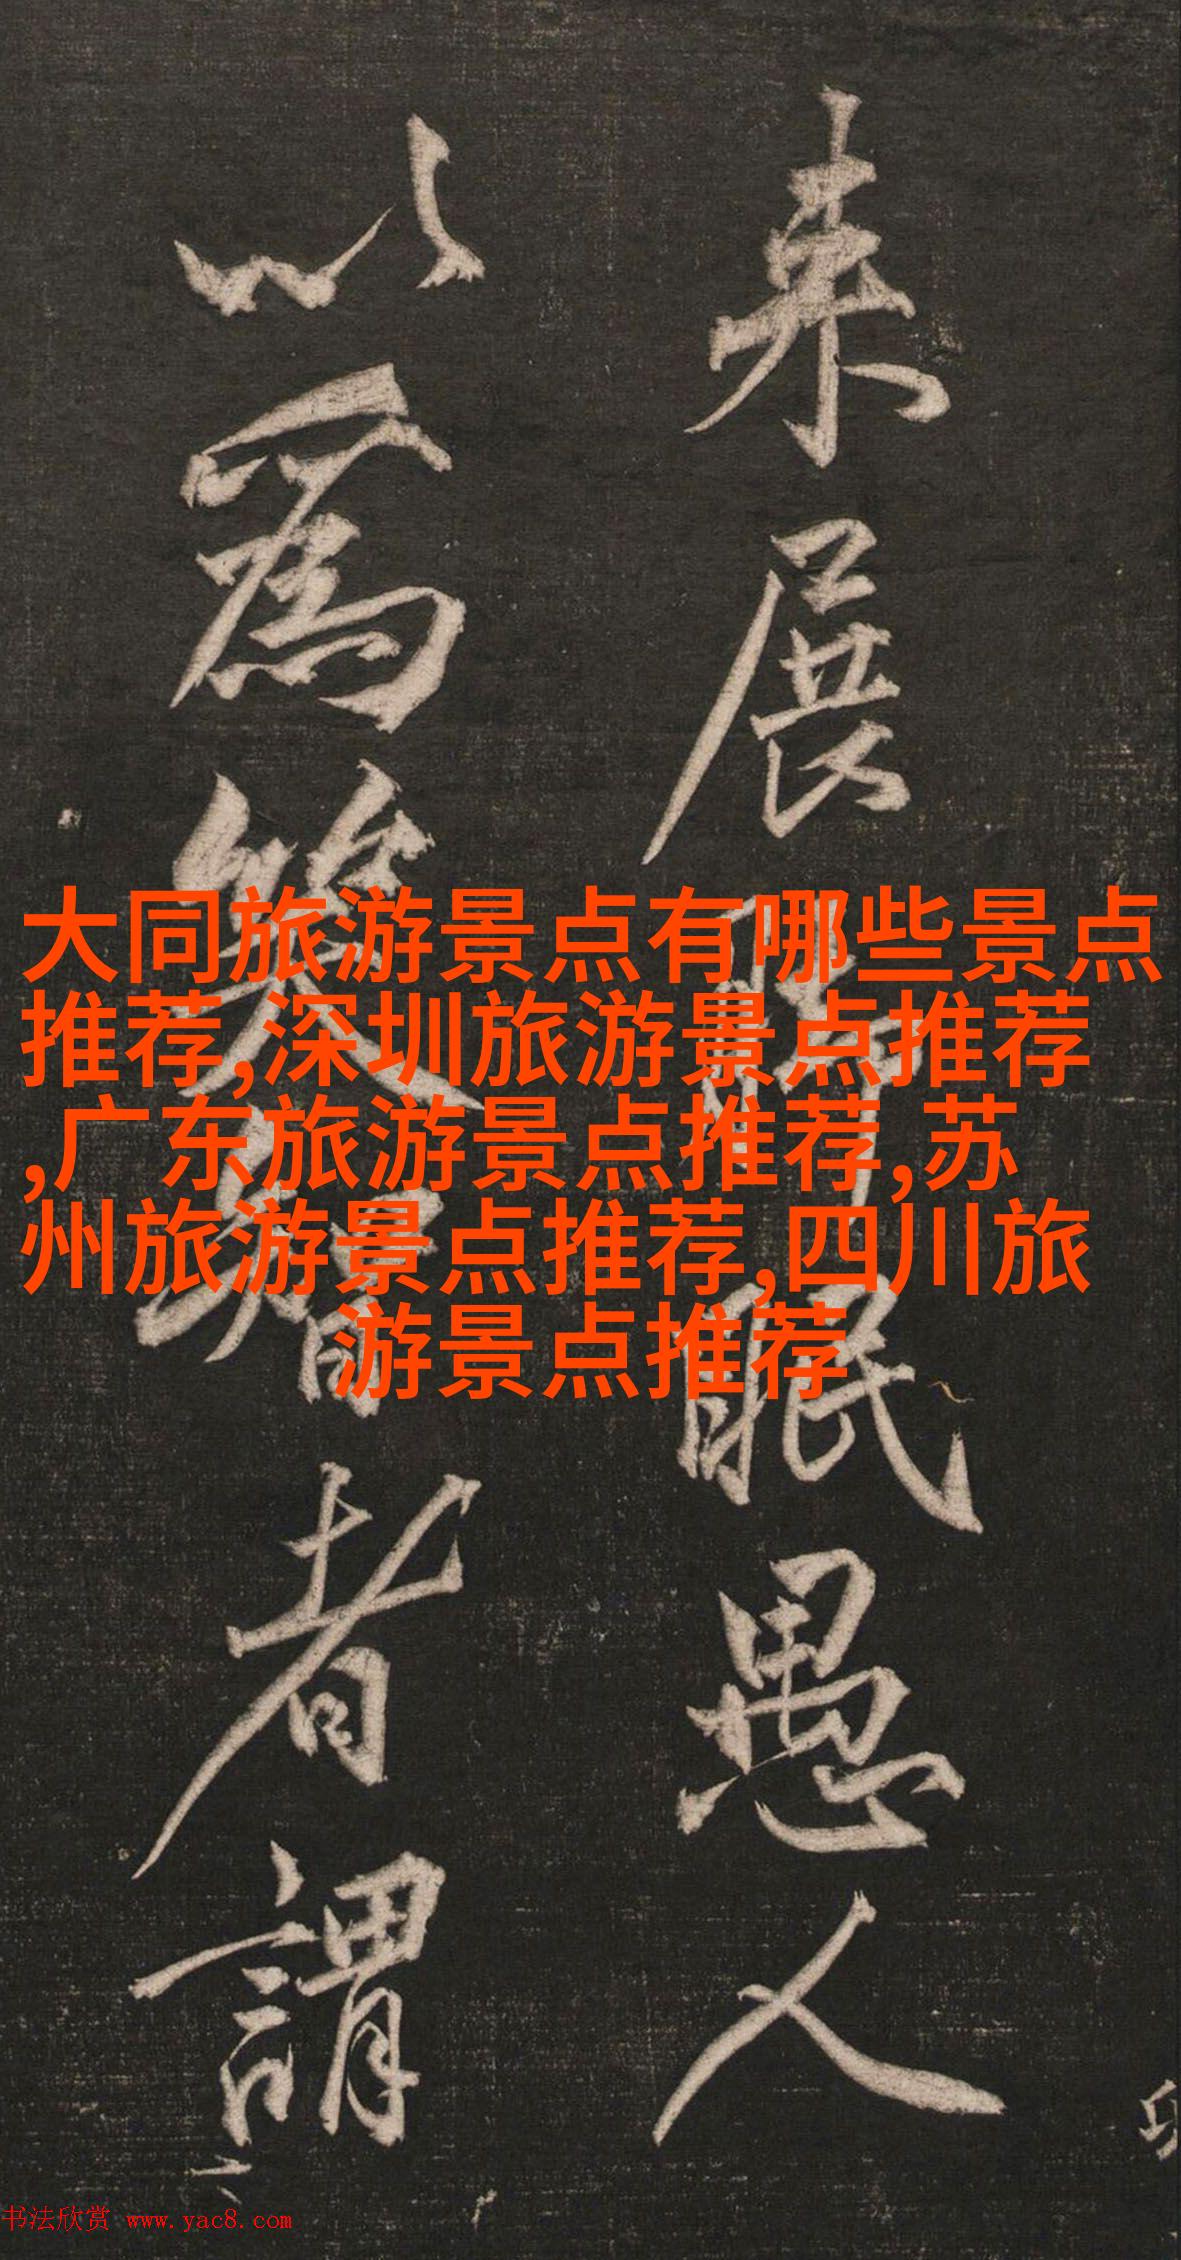 来展眉眠愚人
以為笑智者謂
大同旅游景点有哪些景点
推荐,深圳旅游景点推荐
,广东旅游景点推荐,苏
州旅游景点推荐,四川旅
游景点推荐
书法欣赏 www.yac8.com